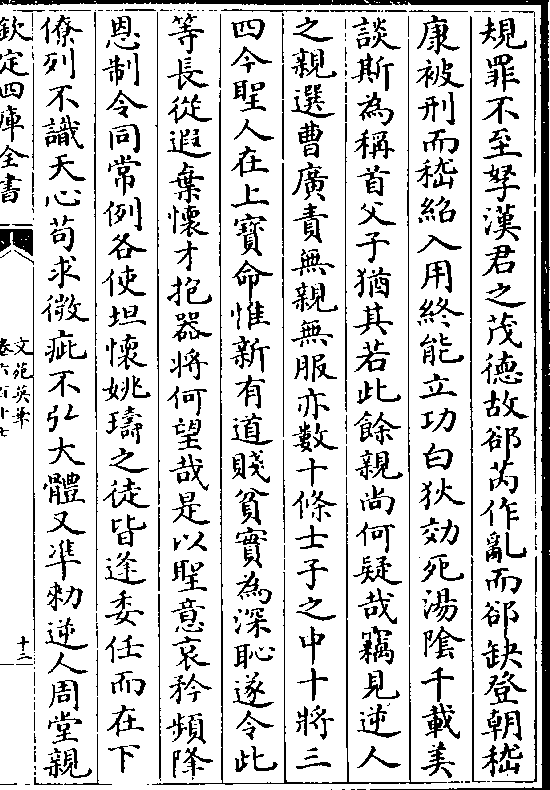 規罪不至孥漢君之茂德故郤芮作亂而郤缺登朝嵇
康被刑而嵇紹入用終能立功白狄効死湯陰千載美
談斯為稱首父子猶其若此餘親尚何疑哉竊見逆人
之親選曹廣責無親無服亦數十條士子之中十將三
四今聖人在上寶命惟新有道賤貧實為深恥遂令此
等長從遐棄懷才抱器將何望哉是以聖意哀矜頻降
恩制令同常例各使坦懷姚璹之徒皆逢委任而在下
僚列不識天心苟求微疵不弘大體又準勑逆人周堂親
欽定四庫全書
文苑英華
卷六百十七
十二